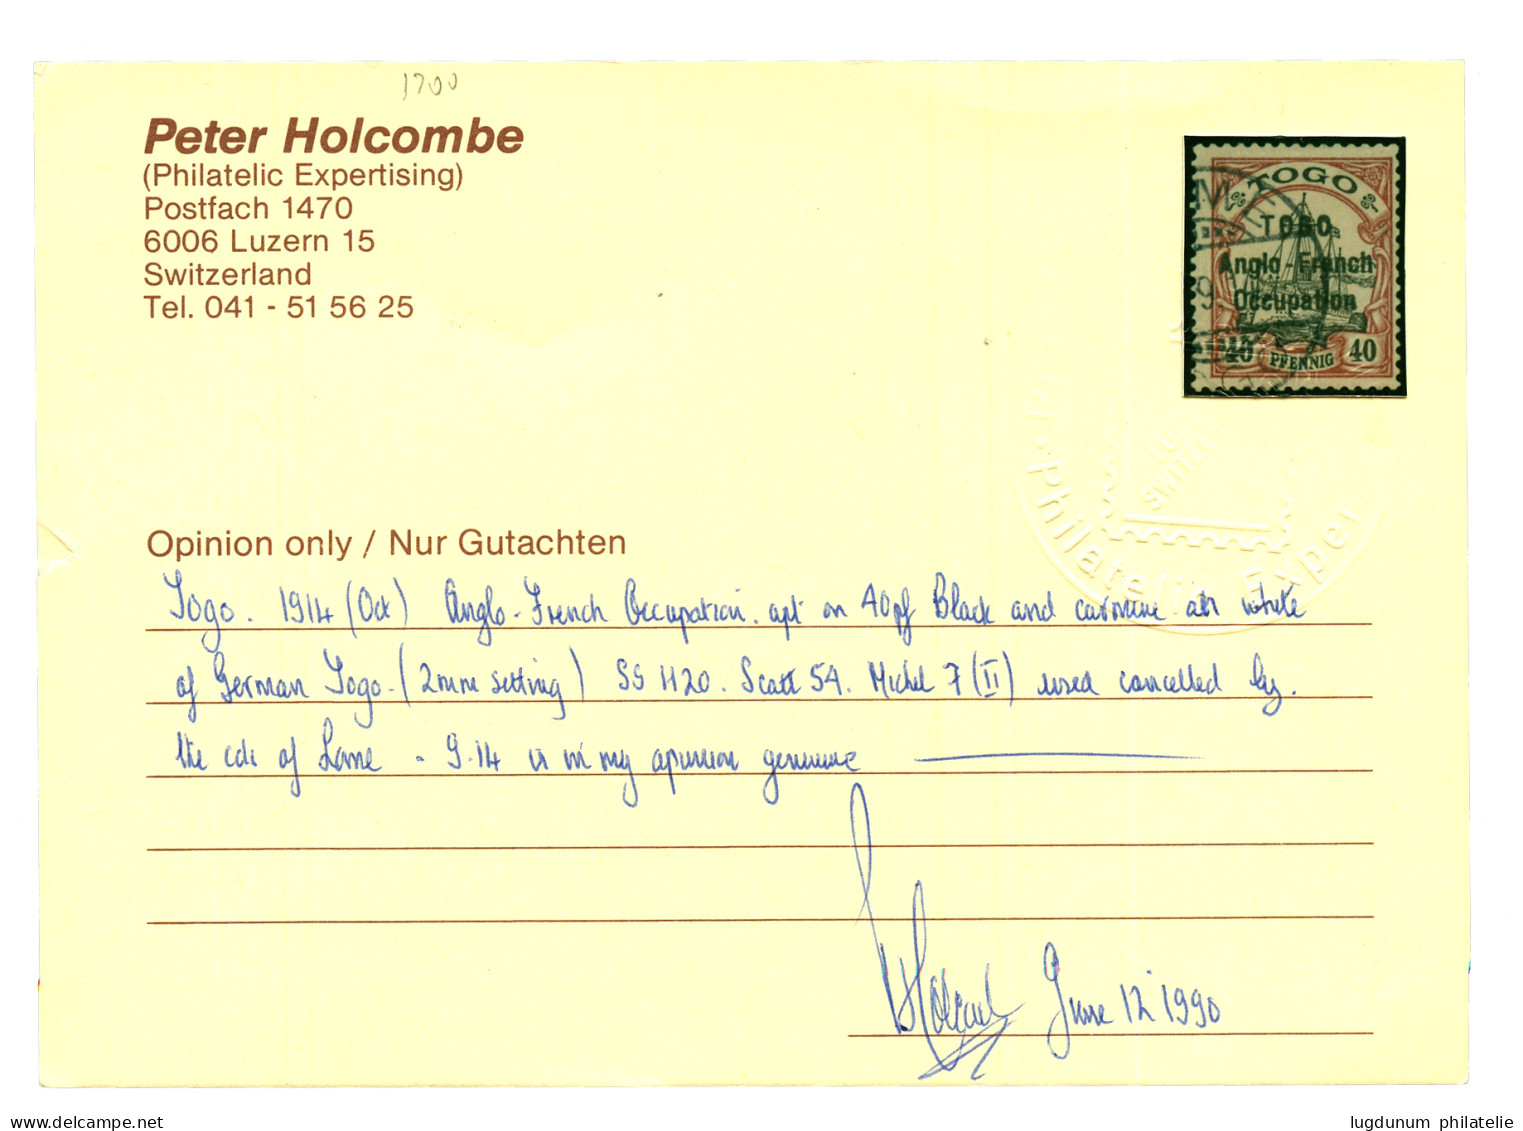 1700
Peter Holcombe
(Philatelic Expertising)
Postfach 1470
6006 Luzern 15
Switzerland
Tel. 041 - 51 56 25
TOGO
TOGO
Anglo - French
Occupation
40 PFENNIG 40
Philatelic Exper
Opinion only / Nur Gutachten
Togo. 1914 (Oct) Anglo-French Occupation. opt on 40pf Black and carmine on white
of German Togo. (2mm setting) SG H20. Scott 54. Michel 7 (II) used cancelled by.
the cds of Lome - 9.14 is in my opinion genuine
June 12 1990
www.delcampe.net
lugdunum philatelie